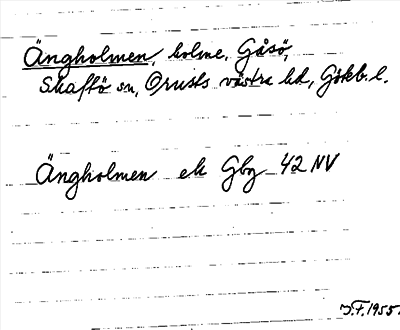 Ängholmen, holme, Gåsö,
Skaftö sn, Orusts västra hd, Götkb. l.
Ängholmen ek Gbg 42 NV
J.F. 1955.